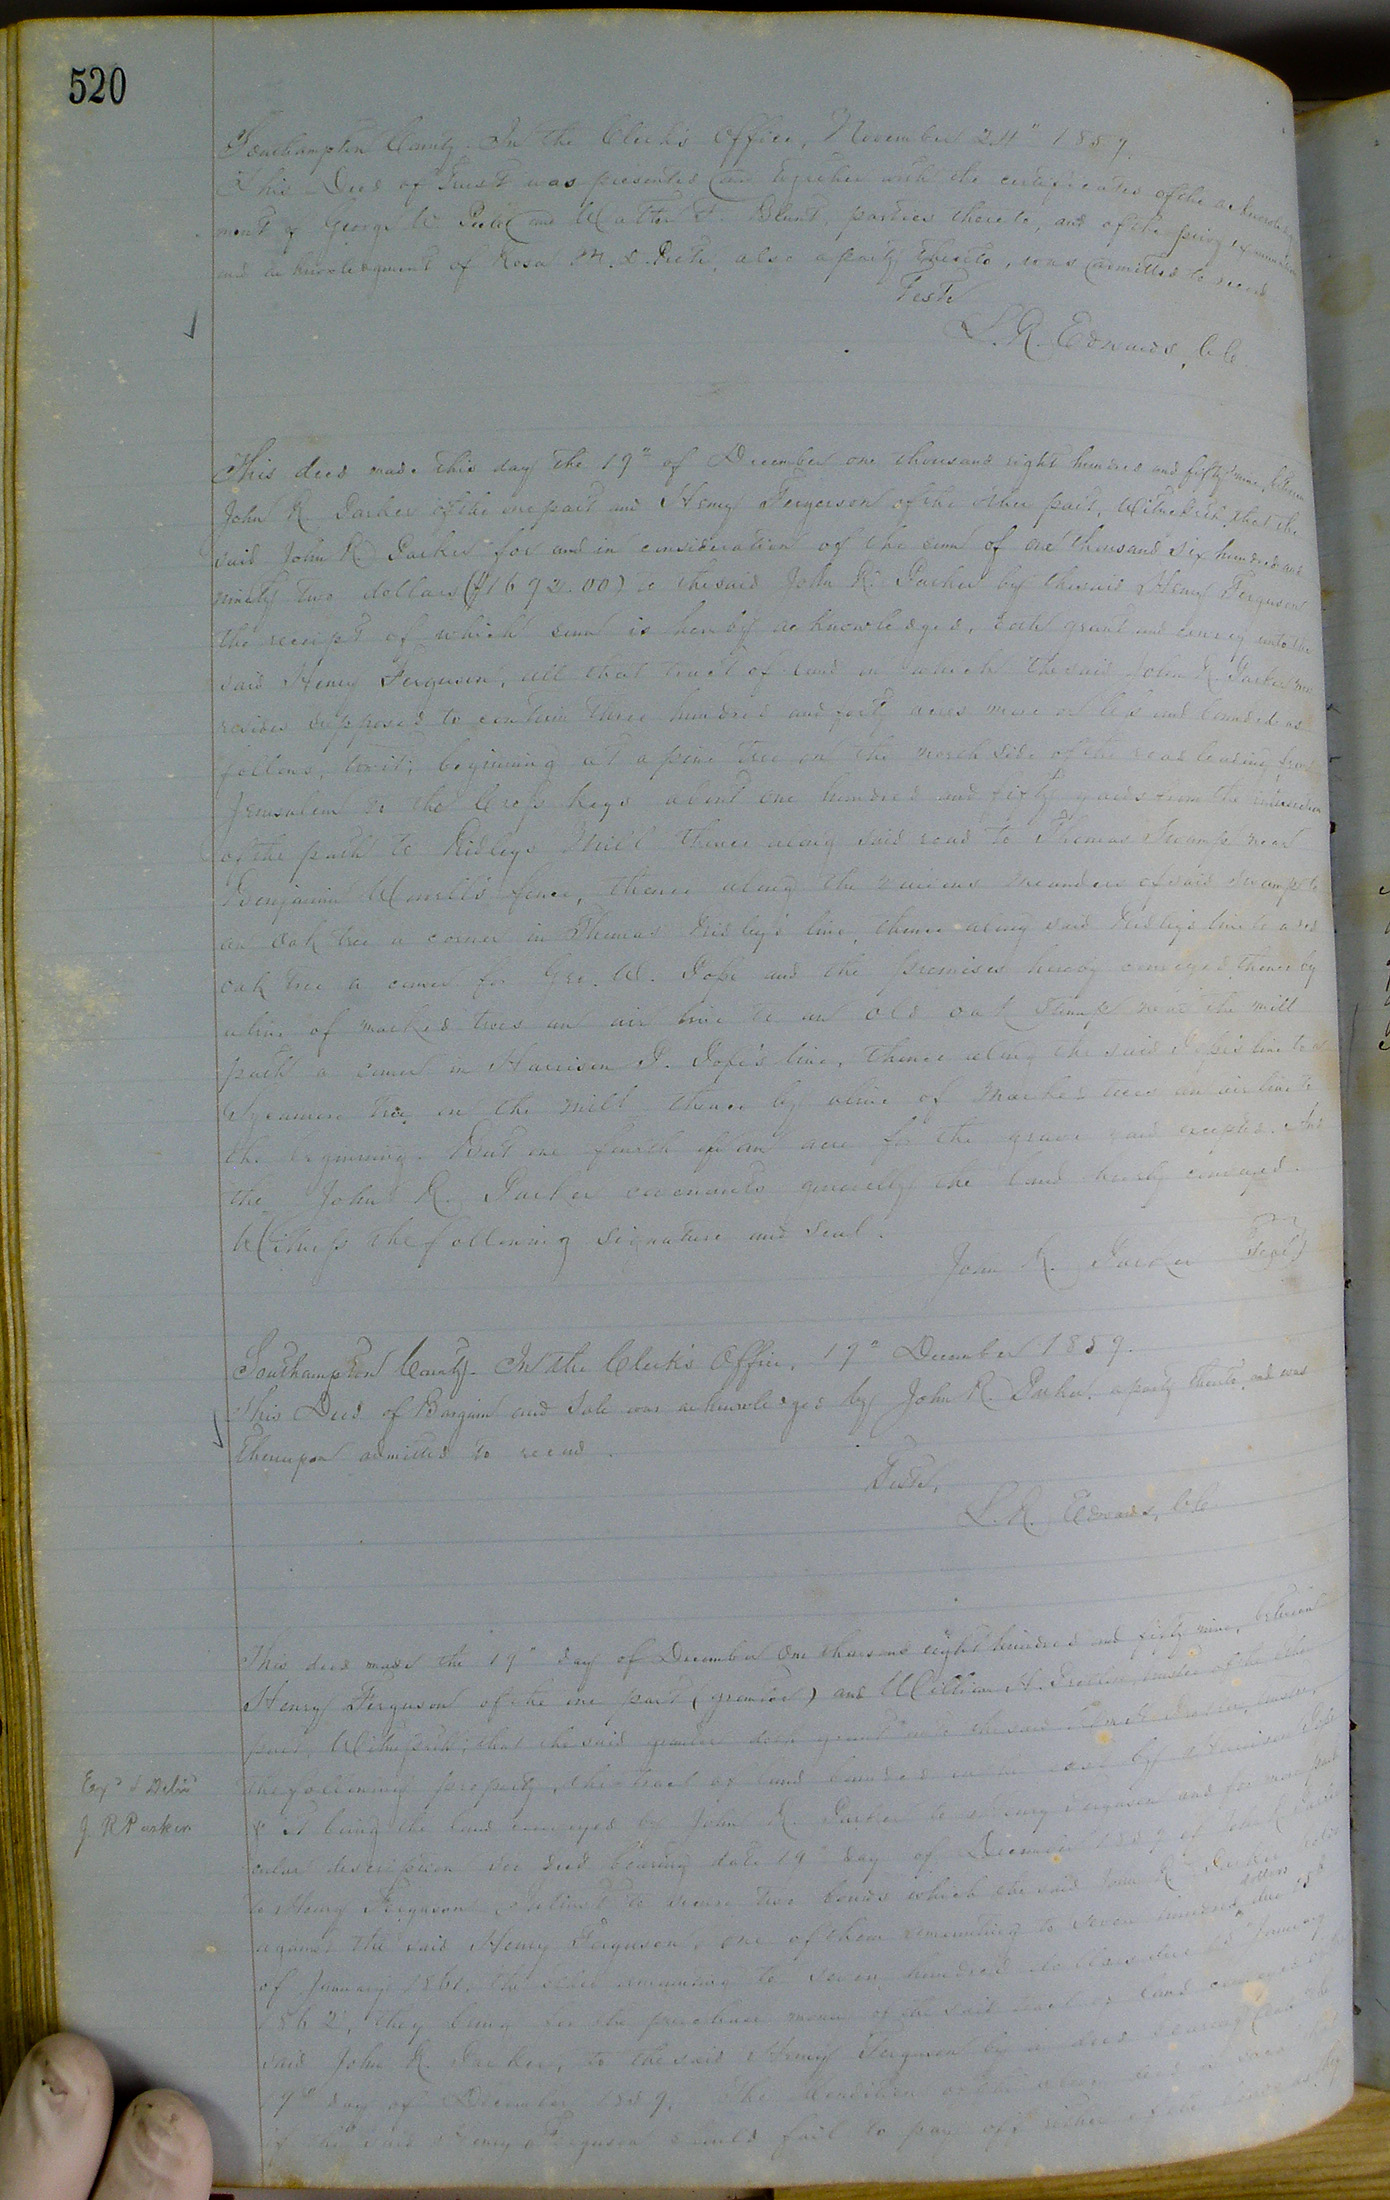 520
Southampton County. In the Clerk's Office, November 24" 1859.
This Deed of Trust was presented and together with the certificates of the acknowledg
ment of George W. and Walter F. Blunt, parties thereto, and of the privy examination
and acknowledgment of Rosa M. S. also a party thereto, was admitted to record
Teste
L. R. Edwards, C.C.
This deed made this day the 19" of December one thousand eight hundred and fifty nine, between
John R. Parker of the one part and Henry Fergerson of the other part, Witnesseth, that the
said John R. Parker for and in consideration of the sum of one thousand six hundred and
ninety two dollars ($1692.00) to the said John R. Parker by the said Henry Ferguson
the receipt of which sum is hereby acknowledged, doth grant and convey unto the
said Henry Ferguson, all that tract of land on which the said John R. Parker now
resides supposed to contain three hundred and forty acres more or less and bounded as
follows, towit; beginning at a pine tree on the north side of the road leading from
Jerusalem to the Cross Keys about one hundred and fifty yards from the intersection
of the path to Ridleys Mill thence along said road to Thomas Swamp near
Benjamin Worrell's fence, thence along the various meanders of said swamp to
an oak tree a corner in Thomas Ridley's line, thence along said Ridley's line to a red
oak tree a corner for Geo. W. Pope and the premises hereby conveyed, thence by
a line of marked trees an air line to an old oak stump near the mill
path a corner in Harrison P. Pope's line, thence along the said Pope's line to a
Sycamore tree on the mill thence by a line of marked trees an air line to
the beginning. But one fourth of an acre for the grave yard excepted. And
the John R. Parker covenants generally the land hereby conveyed.
Witness the following signature and seal.
John R. Parker {Seal}
Southampton County. In the Clerk's Office, 19" December 1859.
This Deed of Bargain and Sale was acknowledged by John R. Parker, a party thereto, and was
thereupon admitted to record.
Teste,
L. R. Edwards, C.C.
This deed made the 19" day of December One thousand eight hundred and fifty nine, between
Henry Ferguson of the one part (grantor) and William H. trustee of the other
part, Witnesseth; that the said grantor doth grant unto the said Wm H. trustee,
the following property, the tract of land bounded on the east by Harrison Pope
& it being the land conveyed by John R. Parker to Henry Ferguson and for more parti
cular description see deed bearing date 19" day of December 1859 of John R. Parker
to Henry Ferguson In trust to secure two bonds which the said John R. Parker holds
against the said Henry Ferguson, one of them amounting to seven hundred dollars due 1st
of January 1861, the other amounting to seven hundred dollars due 1st January
1862, they being for the purchase money of the said tract of land conveyed by the
said John R. Parker, to the said Henry Ferguson by a deed bearing date the
19" day of December 1859. The condition of the above deed is such that
if the said Henry Ferguson should fail to pay off either of the bonds
Exd & Delivd
J. R. Parker